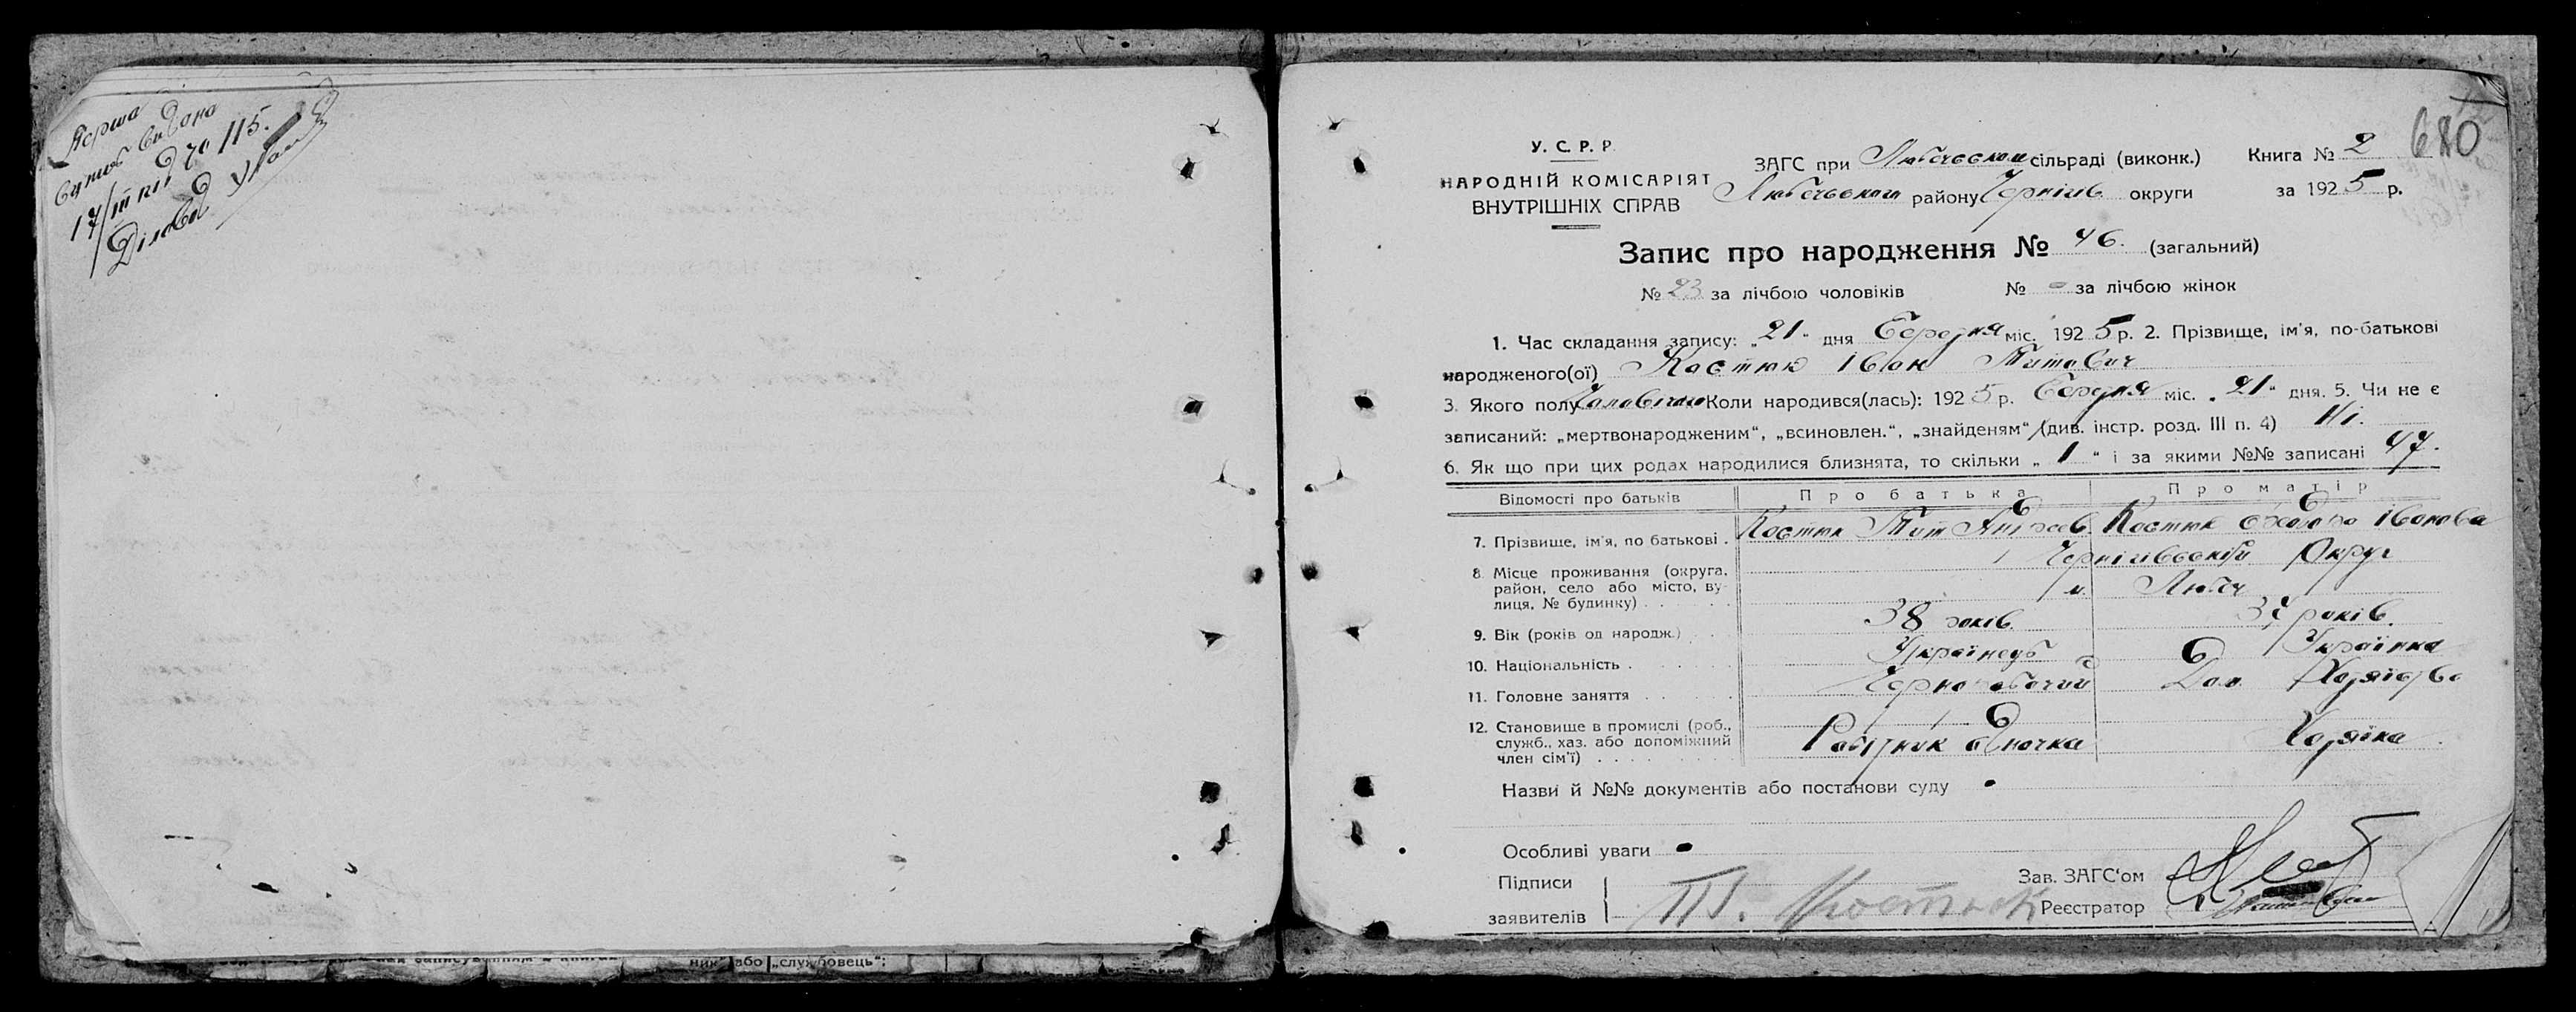 Перша
видана
17/III під № 115.
Діловод
680
У. С. Р. Р.
НАРОДНІЙ КОМІСАРІЯТ
ВНУТРІШНІХ СПРАВ
ЗАГС при Любечськом сільраді (виконк.) Книга № 2
Любечськом району Чернігів округи за 1925 р.
Запис про народження № 46. (загальний)
№ 23 за лічбою чоловіків № - за лічбою жінок
1. Час складання запису: „21“ дня Березня міс. 1925 р. 2. Прізвище, ім'я, по-батькові
народженого(ої) Костюк Іван Титович
3. Якого полу Коли народився(лась): 1925 р. Березня міс. „21“ дня. 5. Чи не є
записаний: „мертвонародженим“, „всиновлен.“, „знайденям“ (див. інстр. розд. III п. 4) Ні.
6. Як що при цих родах народилися близнята, то скільки „1“ і за якими №№ записані 47.
Відомості про батьків Про батька Про матір
7. Прізвище, ім'я, по батькові . Костюк Тит Андреев. Костюк Іванова
8. Місце проживання (округа, район, село або місто, вулиця, № будинку) . . . Чернігівській Округ
м. Любеч
9. Вік (років од народж.) . . 38 років. 37 років.
10. Національність . Українець Українка
11. Головне заняття . Чорноробочий Дом. Хазяйство
12. Становище в промислі (роб., служб., хаз. або допоміжний член сім'ї) . . . Робітник одночка Хазяїка
Назви й №№ документів або постанови суду
Особливі уваги
Підписи
заявителів Т. Костюк
Зав. ЗАГС'ом
Реєстратор
ник“ або „службовець“;